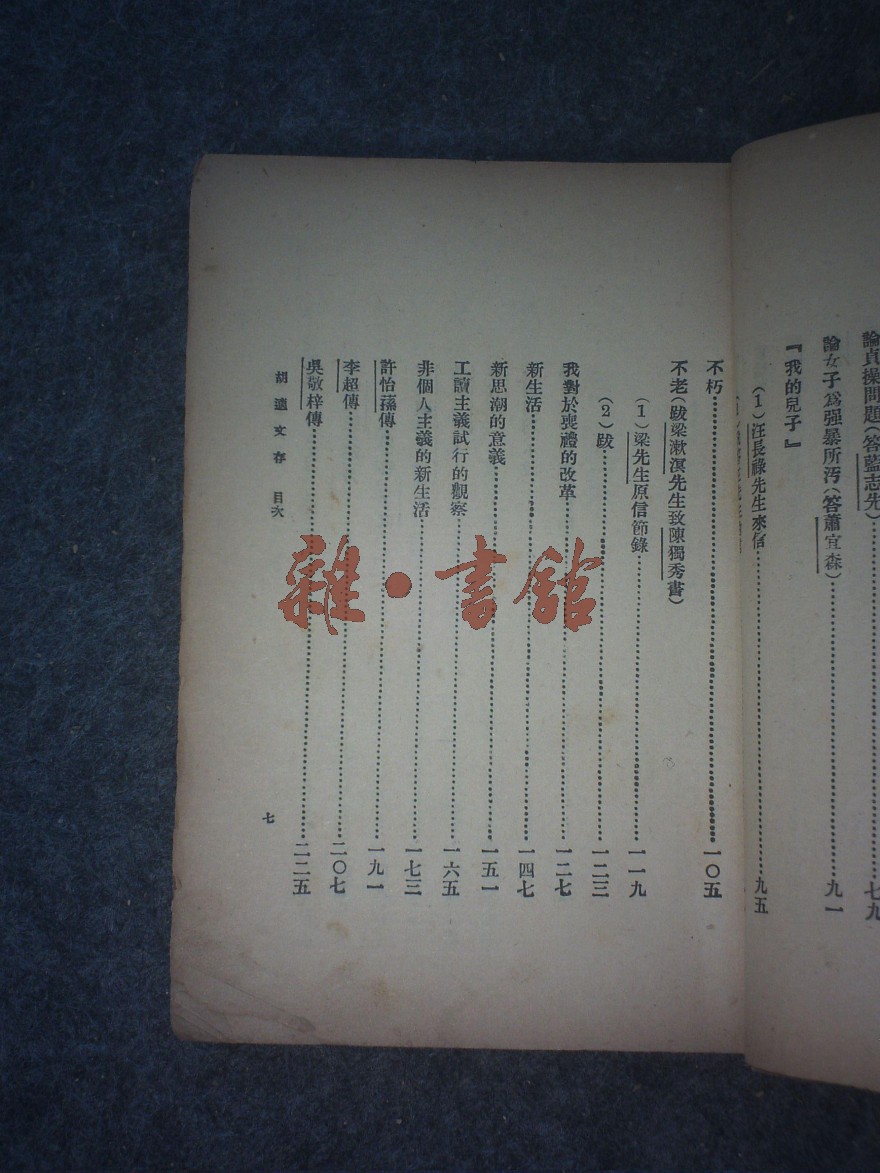 論貞操問題(答藍志先)……七九
論女子爲强暴所汚(答蕭宜森)……九一
『我的兒子』
(1)汪長祿先生來信……九五
不朽……一〇五
不老(跋梁漱溟先生致陳獨秀書)
(1)梁先生原信節錄……一一九
(2)跋……一二三
我對於喪禮的改革……一二七
新生活……一四七
新思潮的意義……一五一
工讀主義試行的觀察……一六五
非個人主義的新生活……一七三
許怡蓀傳……一九一
李超傳……二〇七
吳敬梓傳……二二五
胡適文存 目次
七
雜·書館